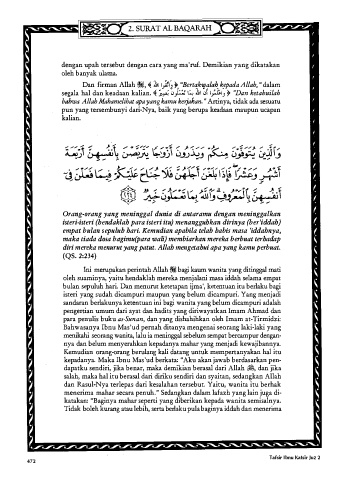 2. SURAT AL BAQARAH
dengan upah tersebut dengan cara yang ma'ruf. Demikian yang dikatakan
oleh banyak ulama.
Dan firman Allah ﷻ, ﴾ وَاتَّقُوا اللَّهَ ﴿ "Bertakwalah kepada Allah," dalam
segala hal dan keadaan kalian. ﴾ وَاعْلَمُوا أَنَّ اللَّهَ بِمَا تَعْمَلُونَ بَصِيرٌ ﴿ "Dan ketahuilah
bahwa Allah Mahamelihat apa yang kamu kerjakan." Artinya, tidak ada sesuatu
pun yang tersembunyi dari-Nya, baik yang berupa keadaan maupun ucapan
kalian.
وَالَّذِينَ يُتَوَفَّوْنَ مِنكُمْ وَيَذَرُونَ أَزْوَاجًا يَتَرَبَّصْنَ بِأَنفُسِهِنَّ أَرْبَعَةَ
أَشْهُرٍ وَعَشْرًا فَإِذَا بَلَغْنَ أَجَلَهُنَّ فَلَا جُنَاحَ عَلَيْكُمْ فِيمَا فَعَلْنَ فِي
أَنفُسِهِنَّ بِالْمَعْرُوفِ وَاللَّهُ بِمَا تَعْمَلُونَ خَبِيرٌ ﴿٢٣٤﴾
Orang-orang yang meninggal dunia di antaramu dengan meninggalkan
isteri-isteri (hendaklah para isteri itu) menangguhkan dirinya (ber'iddah)
empat bulan sepuluh hari. Kemudian apabila telah habis masa 'iddahnya,
maka tiada dosa bagimu (para wali) membiarkan mereka berbuat terhadap
diri mereka menurut yang patut. Allah mengetahui apa yang kamu perbuat.
(QS. 2:234)
Ini merupakan perintah Allah ﷻ bagi kaum wanita yang ditinggal mati
oleh suaminya, yaitu hendaklah mereka menjalani masa iddah selama empat
bulan sepuluh hari. Dan menurut ketetapan ijma', ketentuan itu berlaku bagi
isteri yang sudah dicampuri maupun yang belum dicampuri. Yang menjadi
sandaran berlakunya ketentuan ini bagi wanita yang belum dicampuri adalah
pengertian umum dari ayat dan hadits yang diriwayatkan Imam Ahmad dan
para penulis buku as-Sunan, dan yang dishahihkan oleh Imam at-Tirmidzi:
Bahwasanya Ibnu Mas'ud pernah ditanya mengenai seorang laki-laki yang
menikahi seorang wanita, lalu ia meninggal sebelum sempat bercampur dengan-
nya dan belum menyerahkan kepadanya mahar yang menjadi kewajibannya.
Kemudian orang-orang berulang kali datang untuk mempertanyakan hal itu
kepadanya. Maka Ibnu Mas'ud berkata: "Aku akan jawab berdasarkan pen-
dapatku sendiri, jika benar, maka demikian berasal dari Allah ﷻ, dan jika
salah, maka hal itu berasal dari diriku sendiri dan syaitan, sedangkan Allah
dan Rasul-Nya terlepas dari kesalahan tersebut. Yaitu, wanita itu berhak
menerima mahar secara penuh." Sedangkan dalam lafazh yang lain juga di-
katakan: "Baginya mahar seperti yang diberikan kepada wanita semisalnya.
Tidak boleh kurang atau lebih, serta berlaku pula baginya iddah dan menerima
472
Tafsir Ibnu Katsir Juz 2